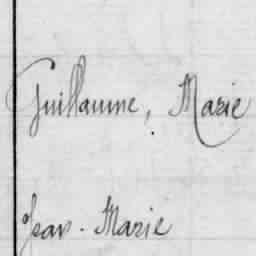 Guillaume, Marie
Jean-Marie